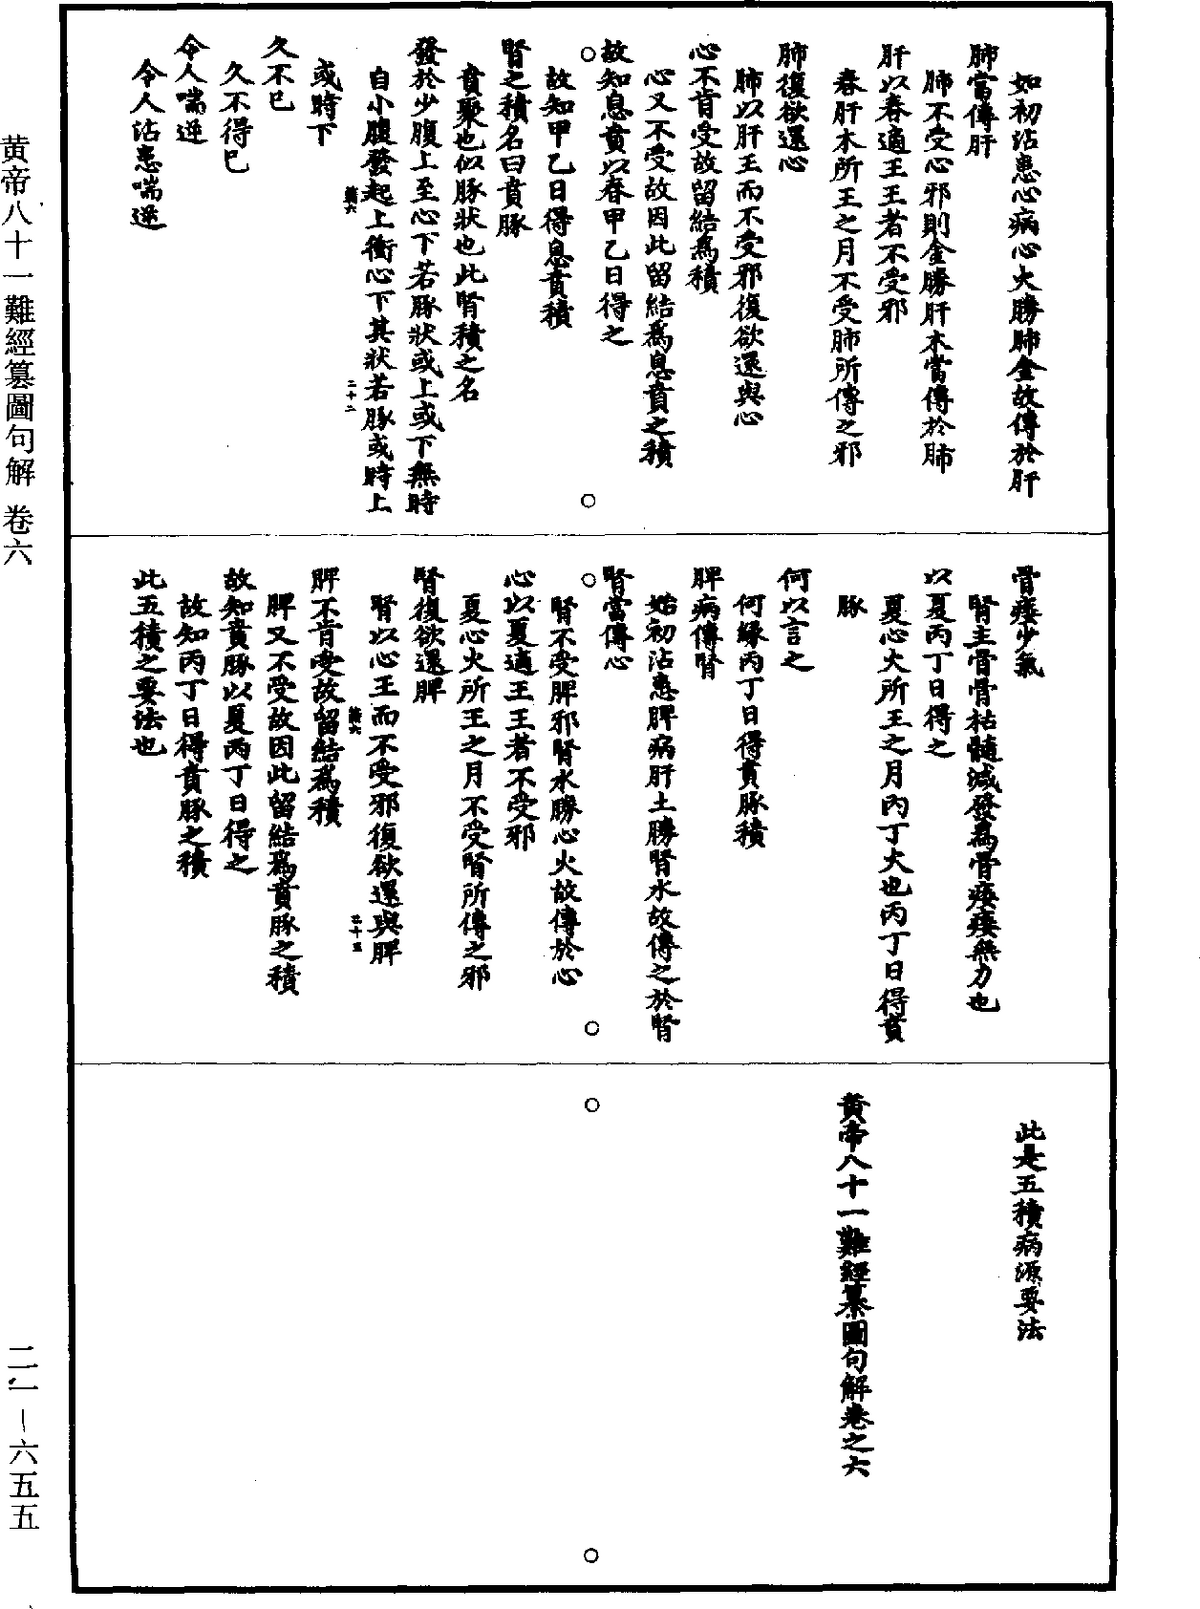 如初沾患心病心火勝肺金故傳於肝
肺當傳肝
肺不受心邪則金勝肝木當傳於肺
肝以春適王王者不受邪
春肝木所王之月不受肺所傳之邪
肺復欲還心
肺以肝王而不受邪復欲還與心
心不肯受故留結為積
心又不受故因此留結為息賁之積
故知息賁以春甲乙日得之
故知甲乙日得息賁積
腎之積名曰賁豚
賁聚也似豚狀也此腎積之名
發於少腹上至心下若豚狀或上或下無時
自小腹發起上衝心下其狀若豚或時上
難六
二十二
或時下
久不已
久不得已
令人喘逆
令人沾患喘逆
骨痿少氣
腎主骨骨枯髓減發為骨痿痿無力也
以夏丙丁日得之
夏心火所王之月丙丁火也丙丁日得賁
豚
何以言之
何緣丙丁日得賁豚積
脾病傳腎
始初沾患脾病肝土勝腎水故傳之於腎
腎當傳心
腎不受脾邪腎水勝心火故傳於心
心以夏適王王者不受邪
夏心火所王之月不受腎所傳之邪
腎復欲還脾
腎以心王而不受邪復欲還與脾
難六
二十三
脾不肯受故留結為積
脾又不受故因此留結為賁豚之積
故知賁豚以夏丙丁日得之
故知丙丁日得賁豚之積
此五積之要法也
此是五積病源要法
黃帝八十一難經纂圖句解卷之六
黄帝八十一難經纂圖句解 卷六
二一—六五五